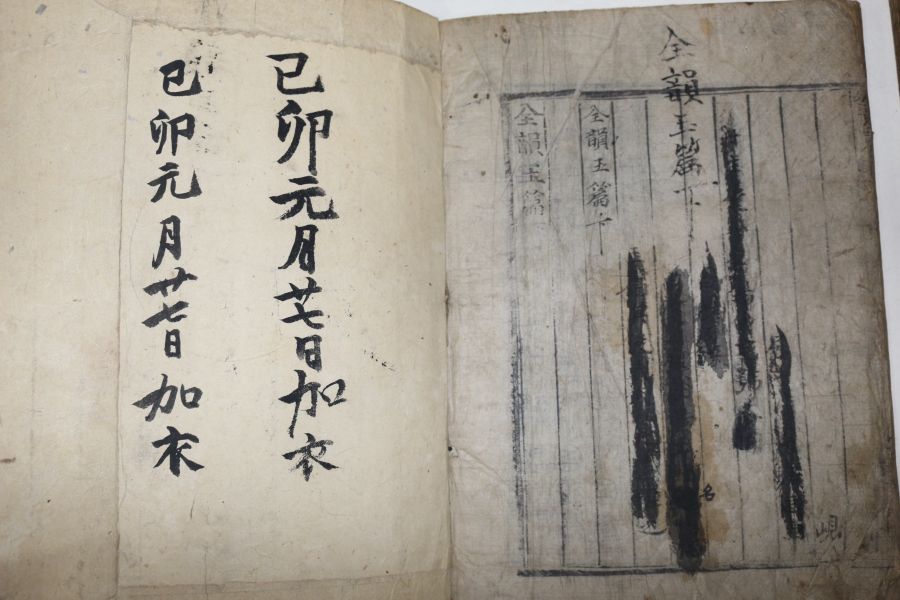 全韻玉篇下
全韻玉篇下
全韻玉篇
名
峴
己卯元月廿七日加衣
己卯元月廿七日加衣